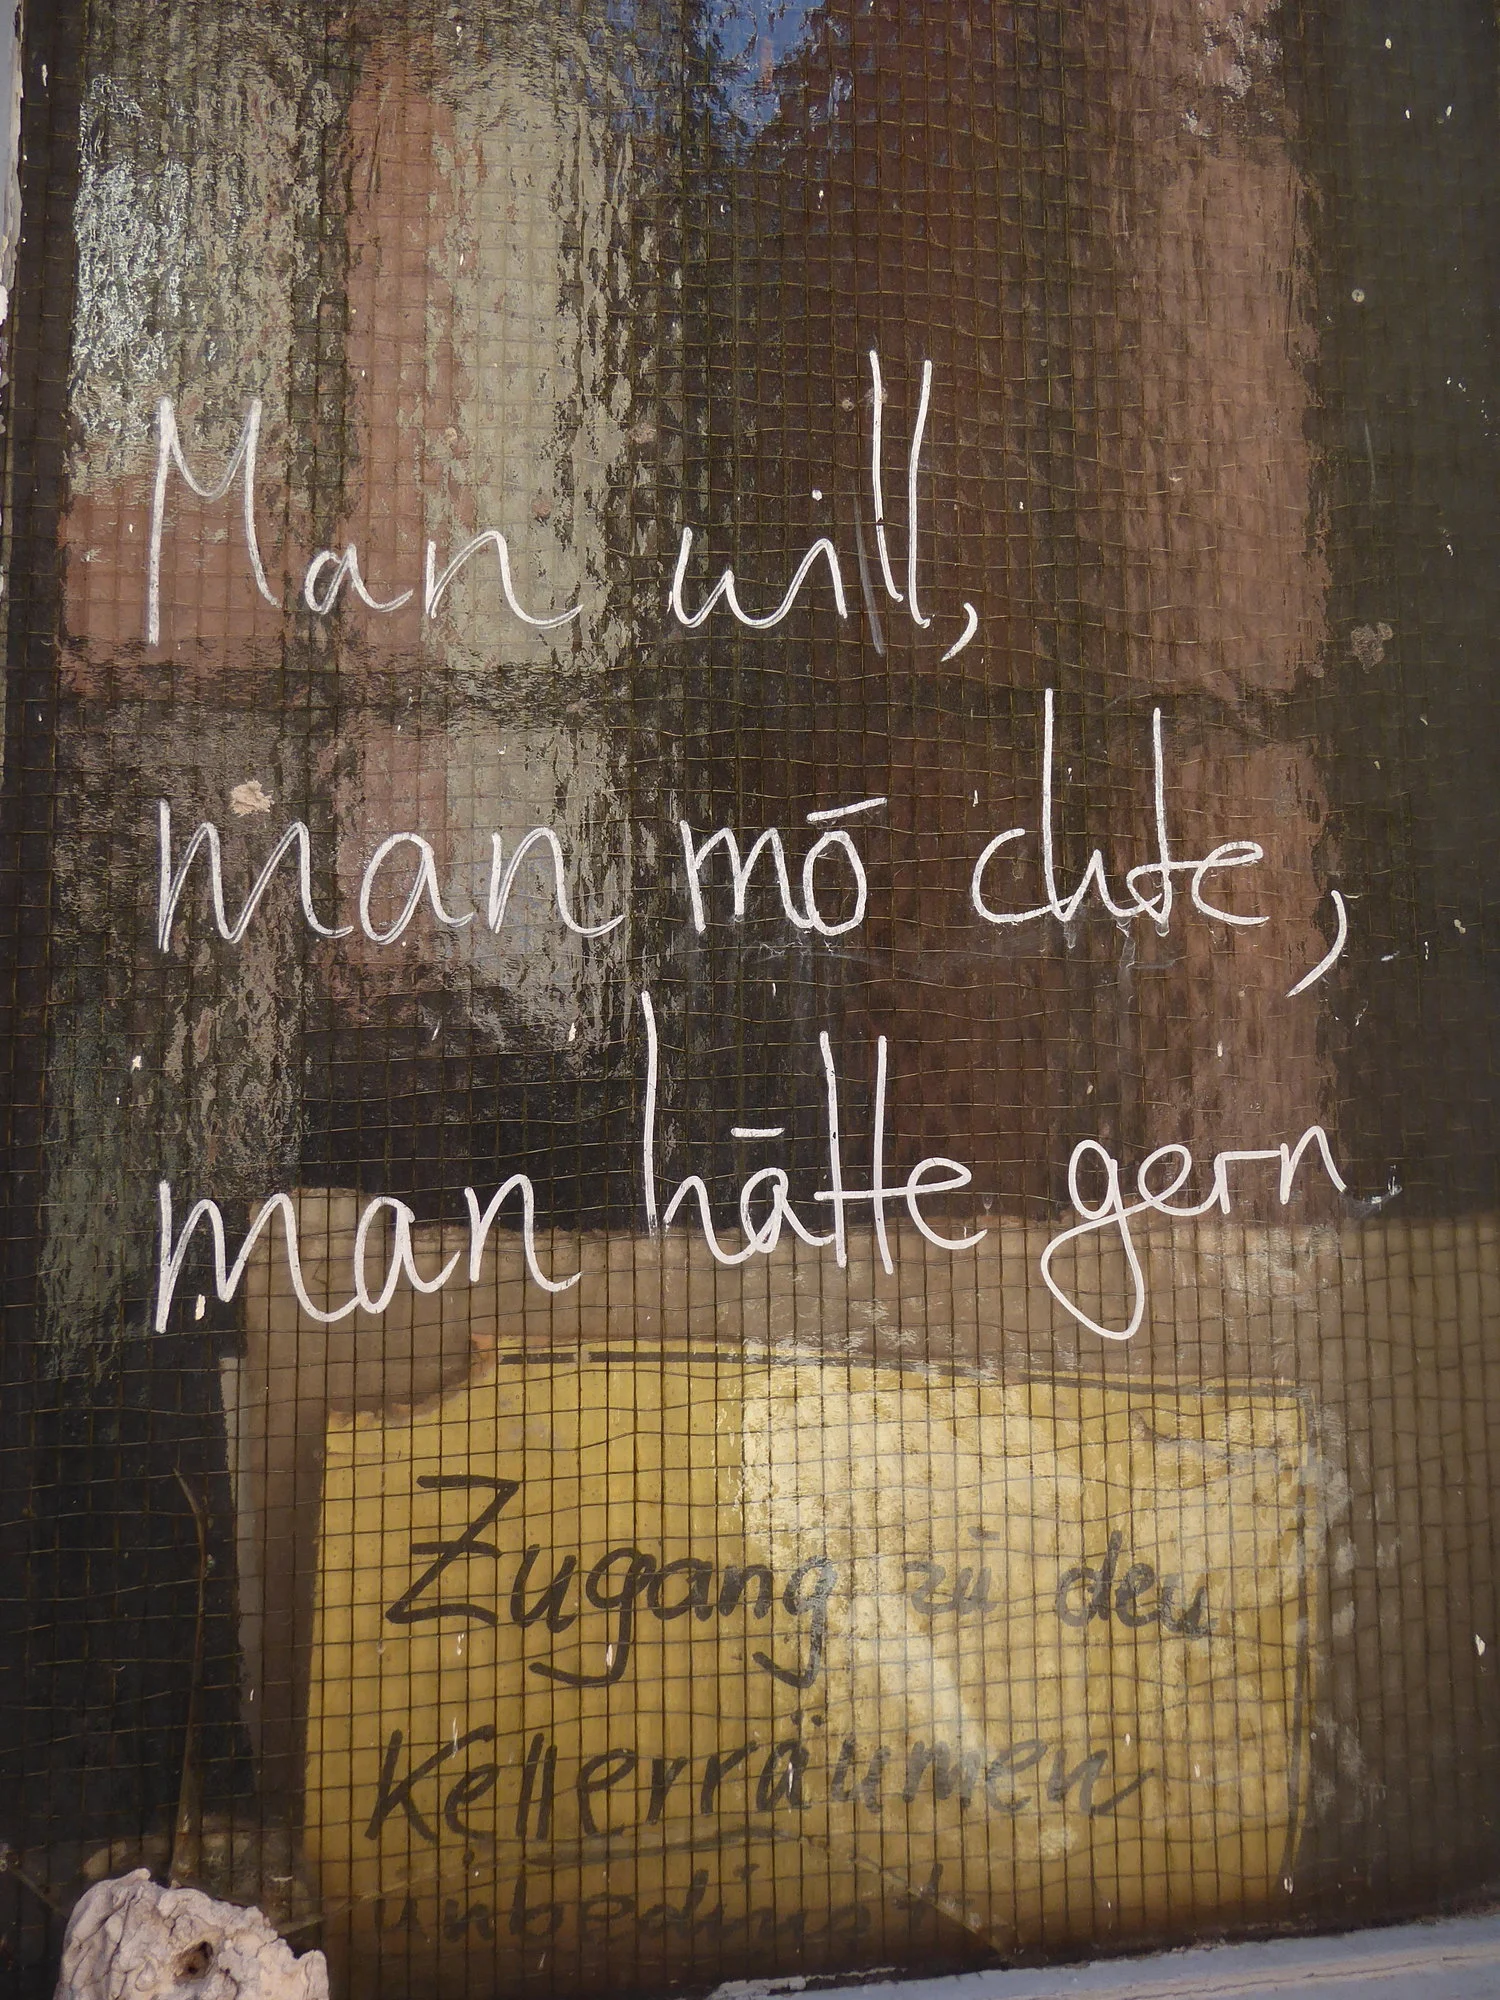 Man will,
man möchte,
man hätte gern
Zugang zu den
Kellerräumen
unbedingt